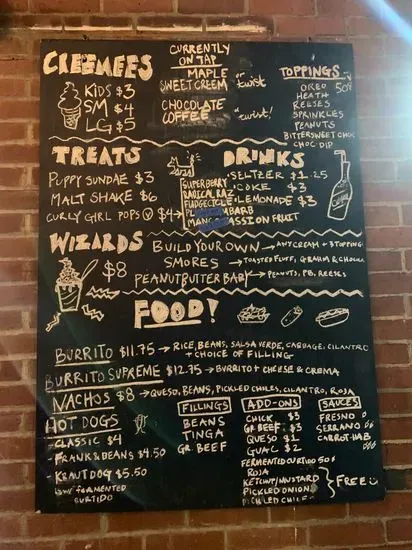 CREEMEES
KIDS $3
SM $4
LG $5
CURRENTLY
ON TAP
MAPLE
SWEET CREEM or twist
CHOCOLATE
COFFEE or twist!
TOPPINGS 50¢
OREO
HEATH
REESES
SPRINKLES
PEANUTS
BITTERSWEET CHOC
CHOC DIP
TREATS
PUPPY SUNDAE $3
MALT SHAKE $6
CURLY GIRL POPS Ⓥ $4→
SUPERBERRY
RADICAL RAZ
FUDGECICLE
BARB
PASSION FRUIT
DRINKS
SELTZER $1.25
COKE $3
LEMONADE $3
WIZARDS
$8
BUILD YOUR OWN → ANY CREAM + 3 TOPPING
SMORES → TOASTED FLUFF, GRAHAM & CHOC
PEANUTBUTTER BABY → PEANUTS, PB, REESES
FOOD!
BURRITO $11.75 → RICE, BEANS, SALSA VERDE, CABBAGE, CILANTRO
+ CHOICE OF FILLING
BURRITO SUPREME $12.75 → BURRITO + CHEESE & CREMA
NACHOS $8 → QUESO, BEANS, PICKLED CHILES, CILANTRO, ROJA
HOT DOGS
- CLASSIC $4
- FRANK & BEANS $4.50
- KRAUT DOG $5.50
FERMENTED
CURTIDO
FILLINGS
BEANS
TINGA
GR. BEEF
ADD-ONS
CHICK $3
GR. BEEF $3
QUESO $1
GUAC $2
FERMENTED CURTIDO 50¢
ROJA
KETCHUP/MUSTARD
PICKLED ONION
PICKLED CHILE
FREE
SAUCES
FRESNO
SERRANO
CARROT-HAB